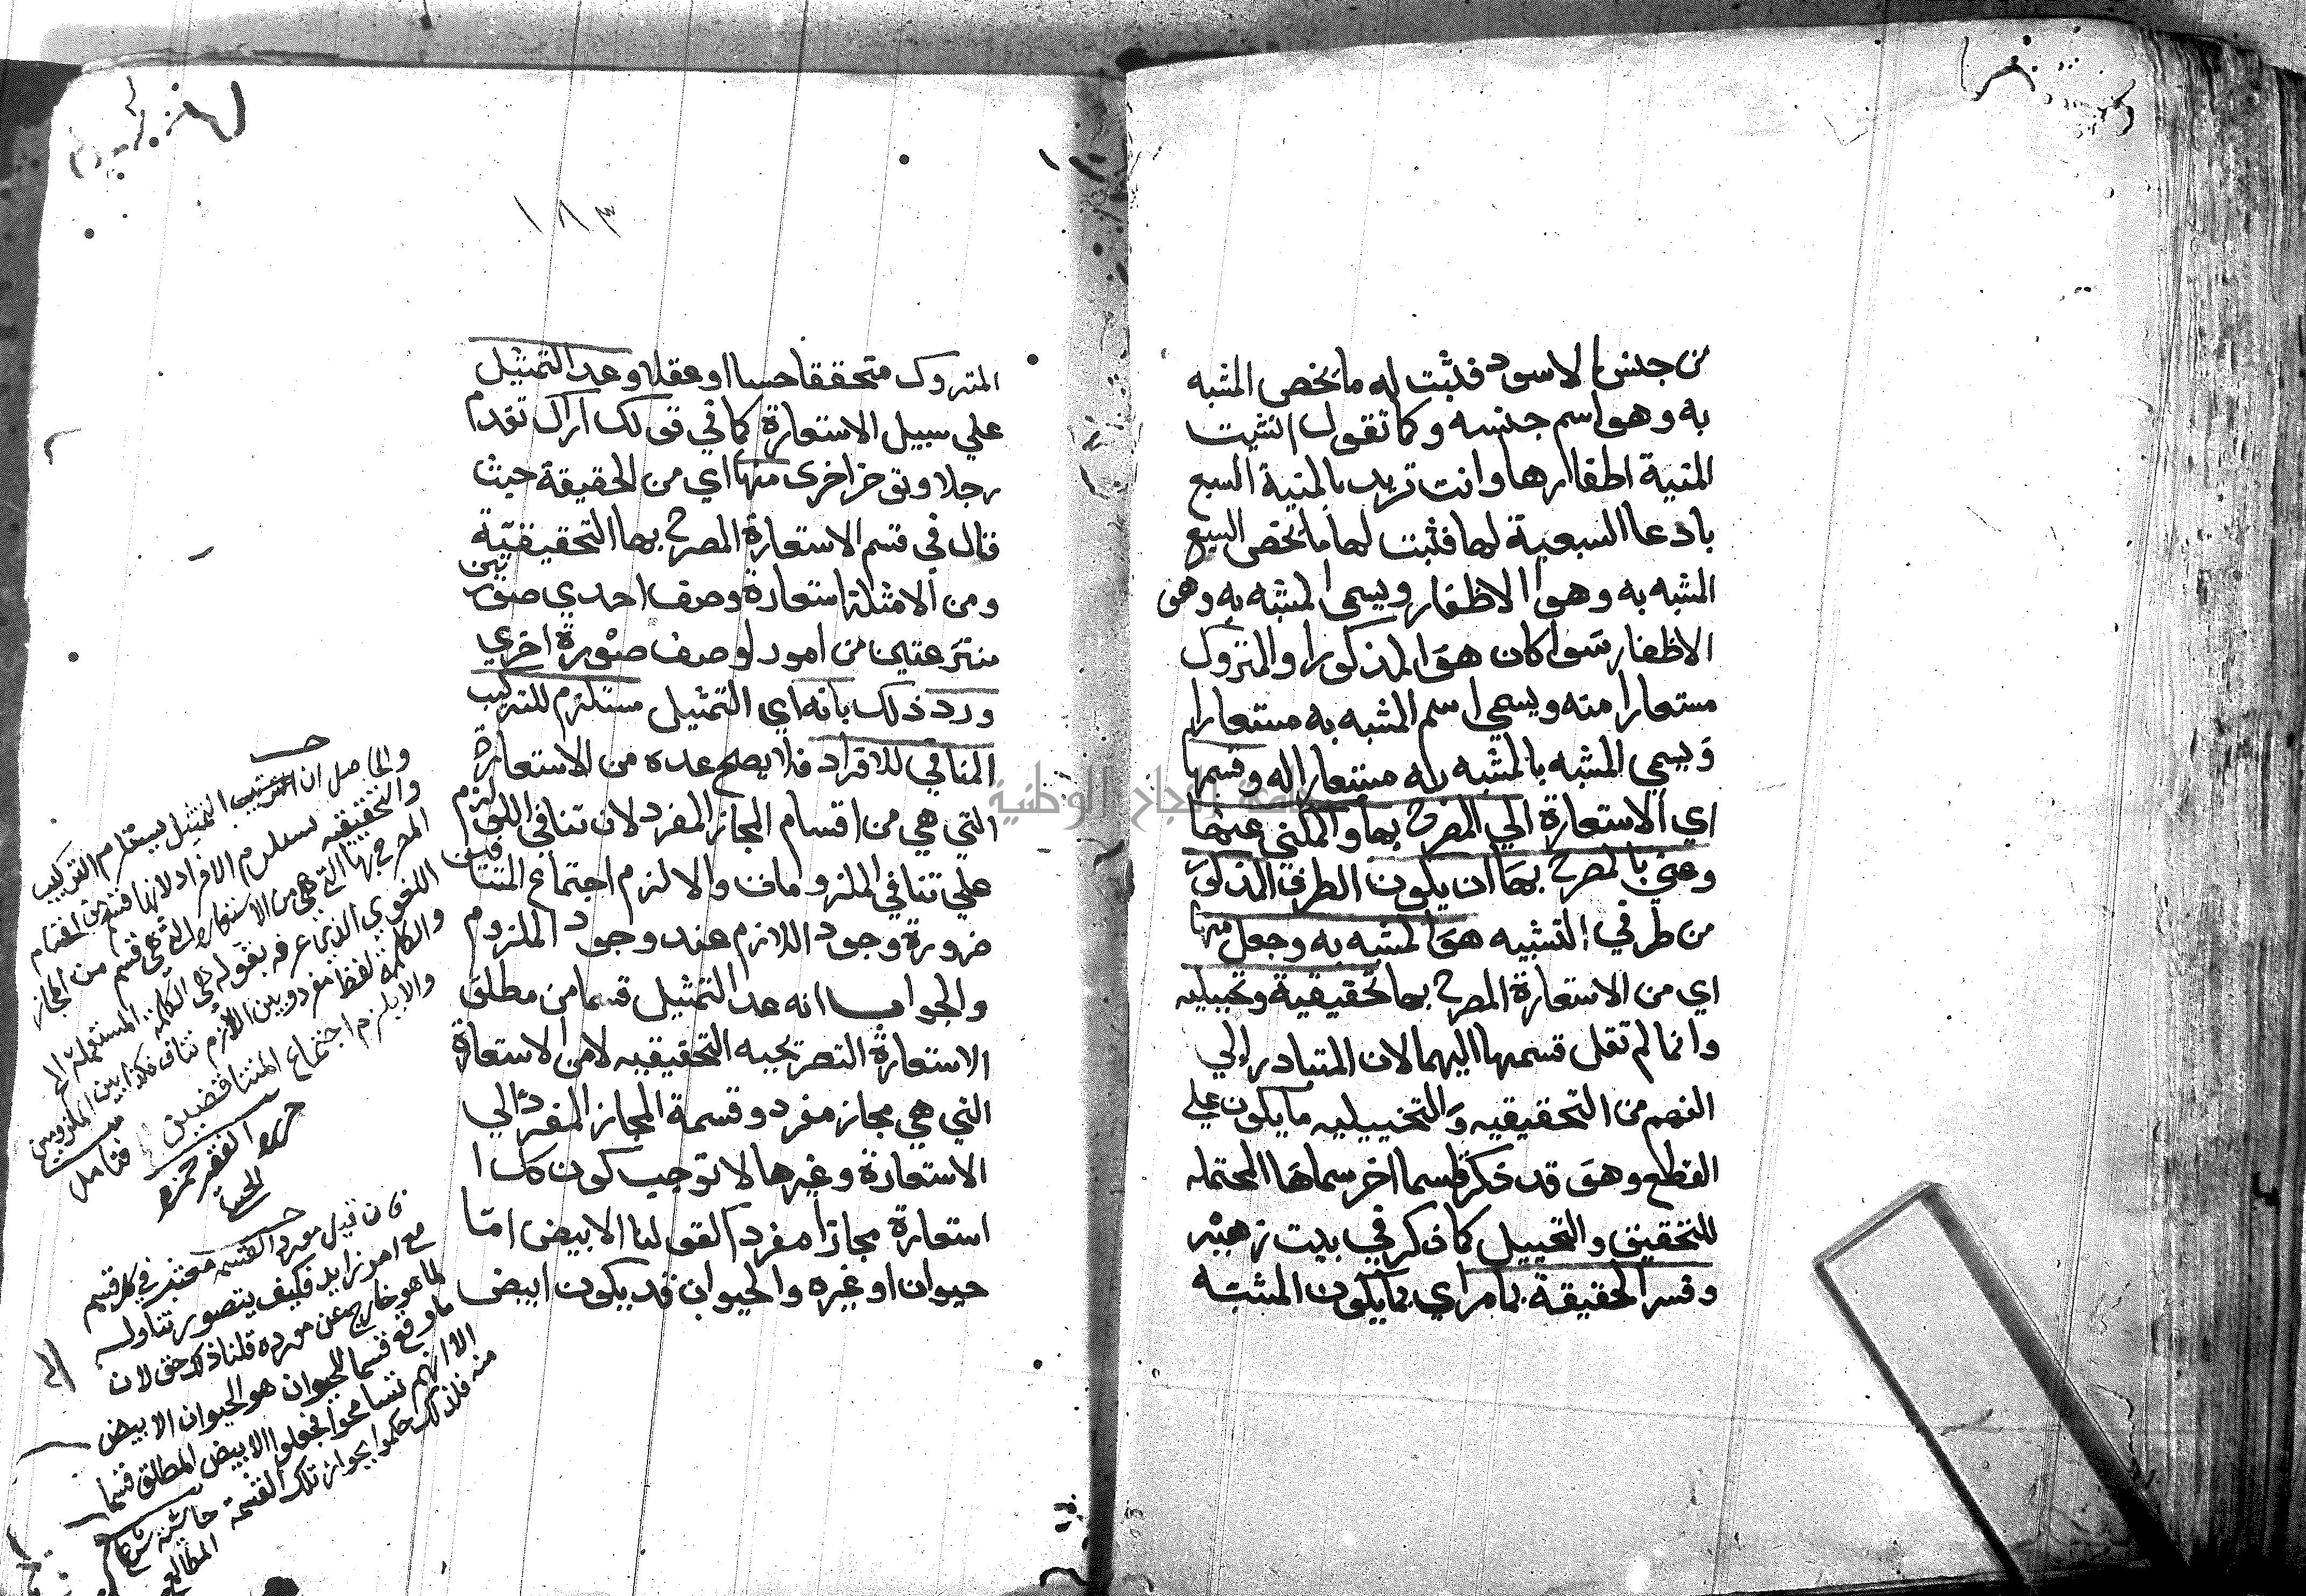 من جنس الاسود فثبت له ما يخص المشبه
به وهو اسم جنسه وكما تقول انشبت
المنية اظفارها وانت تريد بالمنية السبع
بادعا السبعية لها فثبت لها ما يخص السبع
المشبه به وهو الاظفار ويسمى المشبه به وهو
الاظفار سوا كان هو المذكور او المتروك
مستعارا منه ويسمى اسم المشبه به مستعارا
ويسمى المشبه بالمشبه به مستعارا له وقسمها
اي الاستعارة الي المصرح بها والمكني عنها
وعني بالمصرح بها ان يكون الطرف المذكور
من طرفي التشبيه هو المشبه به وجعل منها
اي من الاستعارة المصرح بها تحقيقية وتخييليه
وانما لم تقل قسمها اليهما لان المتبادر الي
الفهم من التحقيقيه والتخييليه ما يكون علي
القطع وهو قد ذكر قسما اخر سماها المحتمله
للتحقيق والتخييل كما ذكر في بيت زهير
وفسر الحقيقة بما مر اي بما يكون المشبه
١٨٣
المتروك متحققا حسا او عقلا وعد التمثيل
علي سبيل الاستعارة كما في قولك اراك تقدم
رجلا وتوخر اخرى منها اي من الحقيقة حيث
قال في قسم الاستعارة المصرح بها التحقيقية
ومن الامثلة استعارة وصف احدي صورتين
منتزعتين من امور لوصف صورة اخري
ورد ذلك بانه اي التمثيل مستلزم للتركيب
المنافي للافراد فلا يصلح عده من الاستعارة
التي هي من اقسام المجاز المفرد لان تنافي اللوازم
علي تنافي الملزومات والا لزم اجتماع المتنافيين
ضرورة وجود اللازم عند وجود الملزوم
والجواب انه عد التمثيل قسما من مطلق
الاستعارة التصريحيه التحقيقيه لا من الاستعارة
التي هي مجاز مفرد وقسمة المجاز المفرد الي
الاستعارة وغيرها لا توجب كون كل
استعارة مجازا مفردا لقولنا الابيض اما
حيوان او غيره والحيوان قد يكون ابيض
والحاصل ان التمثيل يستلزم التركيب
والتحقيقيه تستلزم الافراد لانها قسم من اقسام
المصرح بها التي هي من الاستعاره التي هي قسم من المجاز
اللغوي الذي عرفه بقوله هي الكلمة المستعملة الخ
والكلمة لفظ مفرد وبين اللازم تناف فكذا بين الملزومين
والا يلزم اجتماع المتناقضين فتامل
حرره الفقير حمزه
فان قيل مورد القسمه معتبر في كل قسم
مع امر زايد فكيف يتصور تناوله
لما هو خارج عن مورده قلنا ذلك حق لان
ما وقع قسما للحيوان هو الحيوان الابيض
الا انهم تسامحوا فجعلوا الابيض المطلق قسما
منه فلذلك حكموا بجواز تلك القسمة حاشية شرح
المطالع